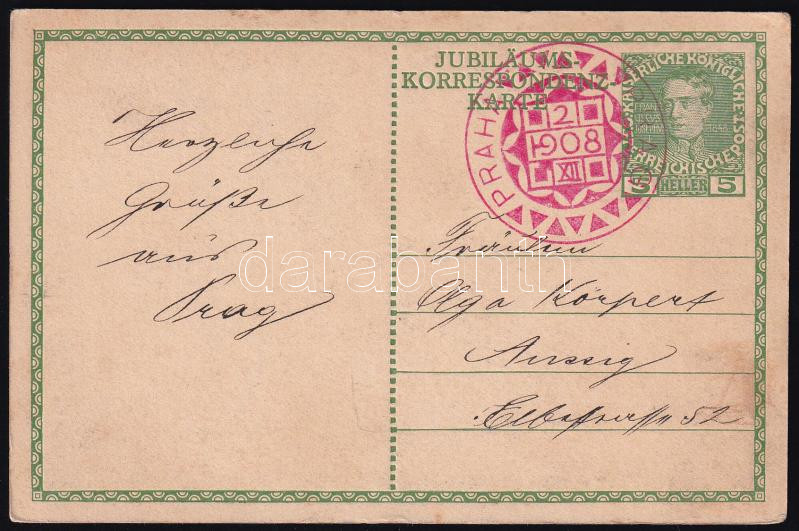 JUBILÄUMS-
KORRESPONDENZ-
KARTE
PRAHA
2
1908
XII
KAISERLICHE KÖNIGLICHE
ÖSTERREICHISCHE POST
FRAN
1848
5 HELLER 5
Herzliche
Grüße
aus
Prag
Fräulein
Olga Körpert
Aussig
Elbestrasse 52
darabanth